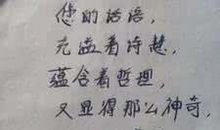 您的话语，
充盈着诗慧，
蕴含着哲理，
又显得那么神奇，